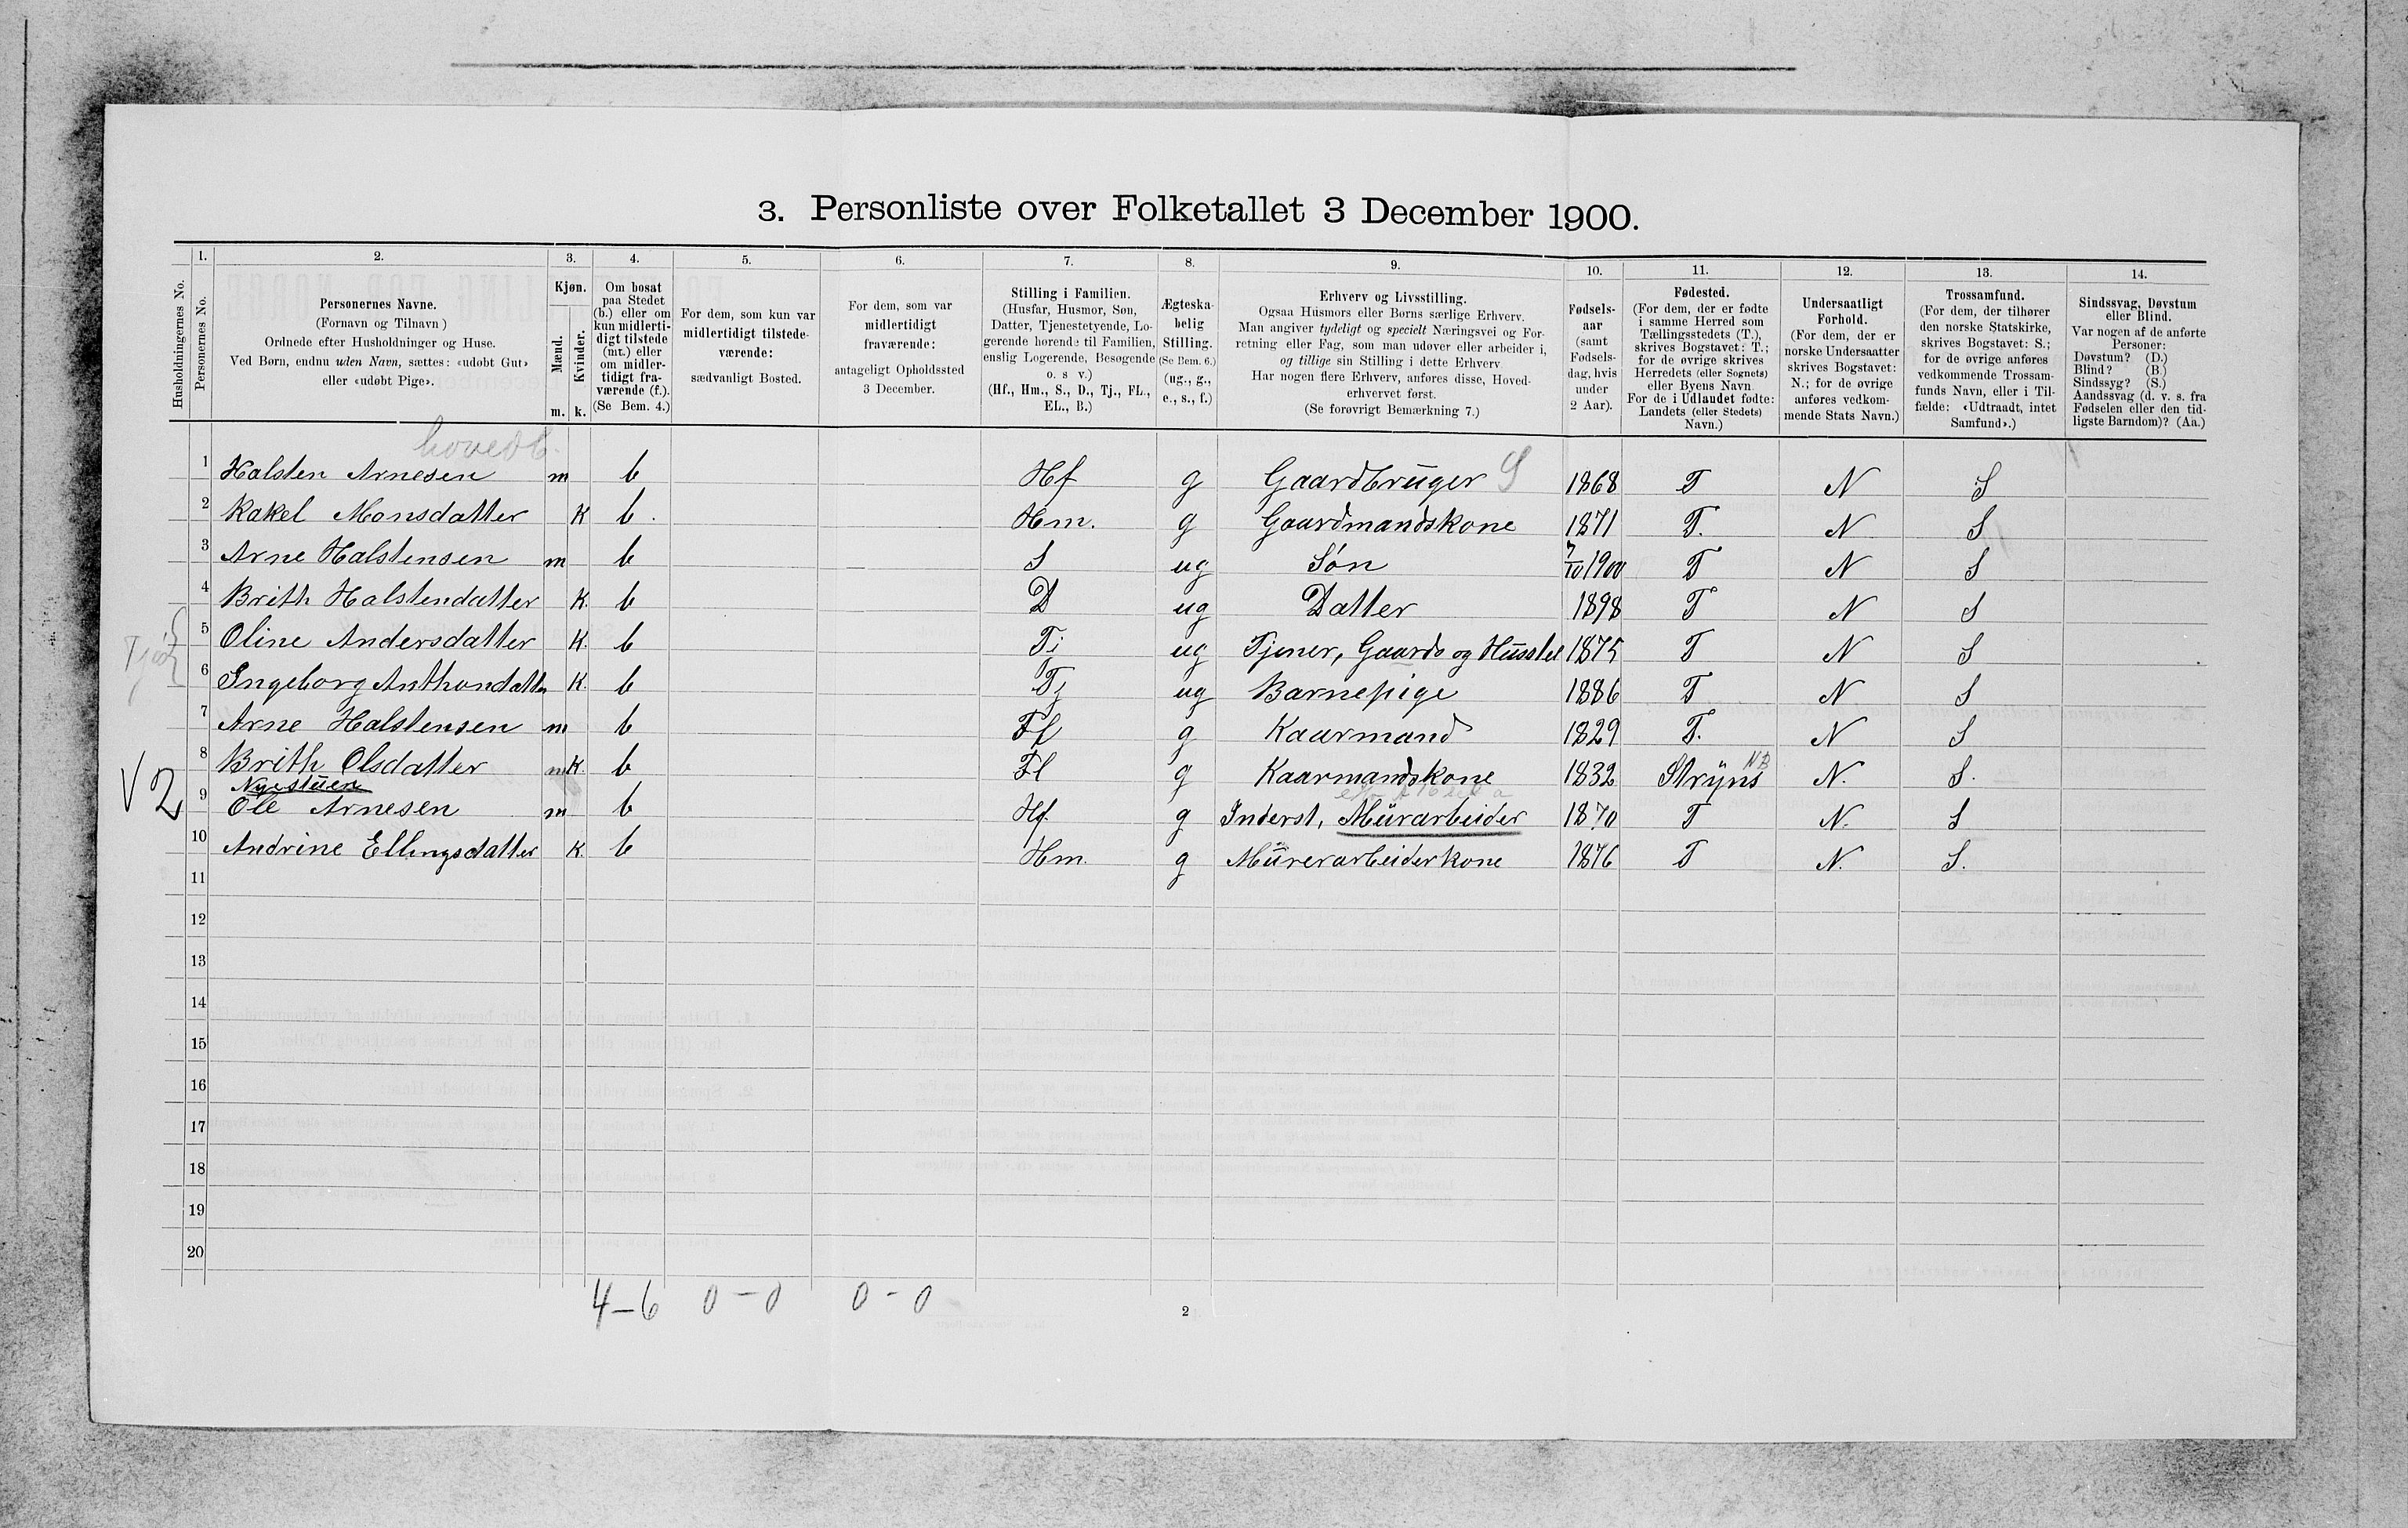 3. Personliste over Folketallet 3 December 1900.
1. 2. 3. 4. 5. 6. 7. 8. 9. 10. 11. 12. 13. 14.
Husholdningernes No.
Personernes No.
Personernes Navne.
(Fornavn og Tilnavn)
Ordnede efter Husholdninger og Huse.
Ved Børn, endnu uden Navn, sættes: «udøbt Gut»
eller «udøbt Pige».
Kjøn.
Mænd.
Kvinder.
m. k.
Om bosat
paa Stedet
(b.) eller om
kun midlerti-
digt tilstede
(mt.) eller
om midler-
tidigt fra-
værende (f.).
(Se Bem. 4.)
For dem, som kun var
midlertidigt tilstede-
værende:
sædvanligt Bosted.
For dem, som var
midlertidigt
fraværende:
antageligt Opholdssted
3 December.
Stilling i Familien.
(Husfar, Husmor, Søn,
Datter, Tjenestetyende, Lo-
gerende hørende til Familien,
enslig Logerende, Besøgende
o. s. v.)
(Hf., Hm., S., D., Tj., FL.,
EL., B.)
Ægteska-
belig
Stilling.
(Se Bem. 6.)
(ug., g.,
e., s., f.)
Erhverv og Livsstilling.
Ogsaa Husmors eller Børns særlige Erhverv.
Man angiver tydeligt og specielt Næringsvei og For-
retning eller Fag, som man udøver eller arbeider i,
og tillige sin Stilling i dette Erhverv.
Har nogen flere Erhverv, anføres disse, Hoved-
erhvervet først.
(Se forøvrigt Bemærkning 7.)
Fødsels-
aar
(samt
Fødsels-
dag, hvis
under
2 Aar).
Fødested.
(For dem, der er fødte
i samme Herred som
Tællingsstedets (T.),
skrives Bogstavet: T.;
for de øvrige skrives
Herredets (eller Sognets)
eller Byens Navn.
For de i Udlandet fødte:
Landets (eller Stedets)
Navn.)
Undersaatligt
Forhold.
(For dem, der er
norske Undersaatter
skrives Bogstavet:
N.; for de øvrige
anføres vedkom-
mende Stats Navn.)
Trossamfund.
(For dem, der tilhører
den norske Statskirke,
skrives Bogstavet: S.;
for de øvrige anføres
vedkommende Trossam-
funds Navn, eller i Til-
fælde: «Udtraadt, intet
Samfund».)
Sindssvag, Døvstum
eller Blind.
Var nogen af de anførte
Personer:
Døvstum? (D.)
Blind? (B.)
Sindssyg? (S.)
Aandssvag (d. v. s. fra
Fødselen eller den tid-
ligste Barndom)? (Aa.)
hovedb.
1 Halsten Arnesen m b Hf g Gaardbruger S 1868 T N S
2 Rakel Monsdatter K b. Hm. g Gaardmandskone 1871 T. N S
3 Arne Halstensen m b S ug Søn 7/10 1900 T N S
4 Brith Halstendatter K. b D ug Datter 1898 T N S
5 Oline Andersdatter K. b Tj ug Tjener, Gaards og Husstel 1875 T N S
6 Ingeborg Anthondatter K. b Tj ug Barnepige 1886 T N S
7 Arne Halstensen m b Fl g Kaarmand 1829 T. N S
8 Brith Olsdatter K. b Fl g Kaarmandskone 1832 Stryns NB N. S.
Nyestuen
V 2 9 Ole Arnesen m b Hf g Inderst, Murarbeider 1870 T N. S
10 Andrine Ellingsdatter K. b Hm. g Murerarbeiderkone 1876 T N. S.
11
12
13
14
15
16
17
18
19
20
4-6 0-0 0-0
2